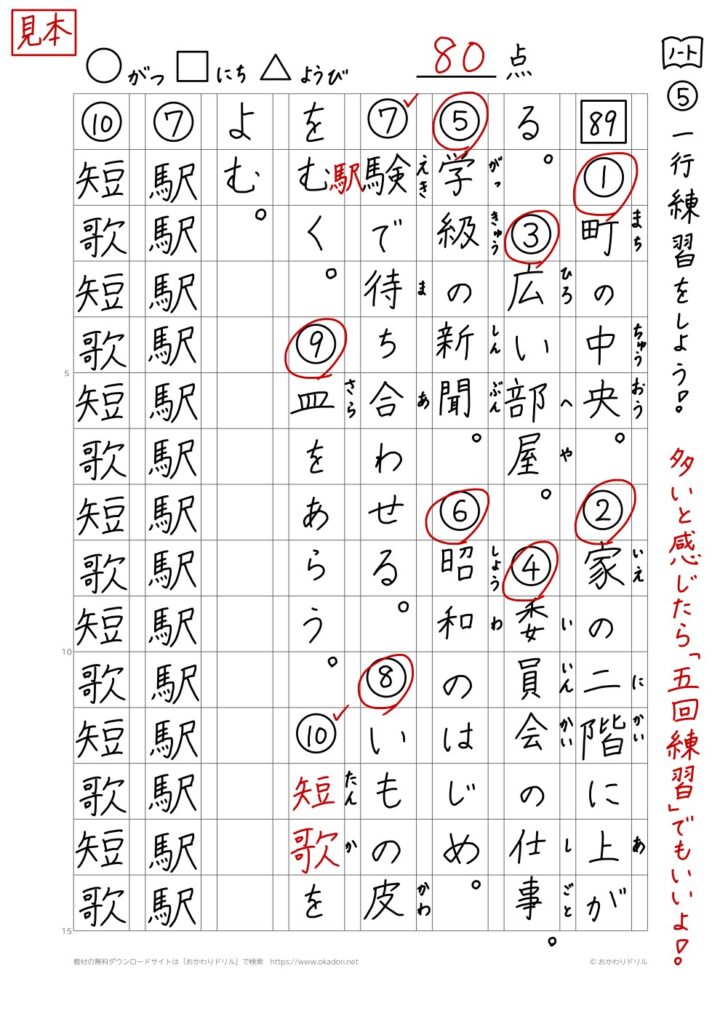 見本
○がつ□にち△ようび
80点
ノート
⑤一行練習をしよう！
多いと感じたら「五回練習」でもいいよ！
89
①町の中央。②家の二階に上が
まち ちゅうおう いえ にかい あ
る。③広い部屋。④委員会の仕事。
ひろ へや いいんかい しごと
⑤学級の新聞。⑥昭和のはじめ。
がっきゅう しんぶん しょうわ
⑦駅験で待ち合わせる。⑧いもの皮
えき ま あ かわ
をむく。⑨皿をあらう。⑩短歌を
さら たんか
よむ。
⑦駅駅駅駅駅駅駅駅駅駅駅駅駅駅
⑩短歌短歌短歌短歌短歌短歌短歌
5
10
15
教材の無料ダウンロードサイトは「おかわりドリル」で検索 https://www.okadori.net
© おかわりドリル